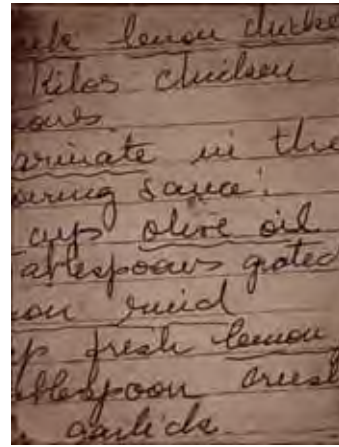 lemon chicke
Kilos chicken

arinate in the
owing sauce:
cups olive oil
ablespoons grated
on rind
p fresh lemon
ablespoon crush
garlick